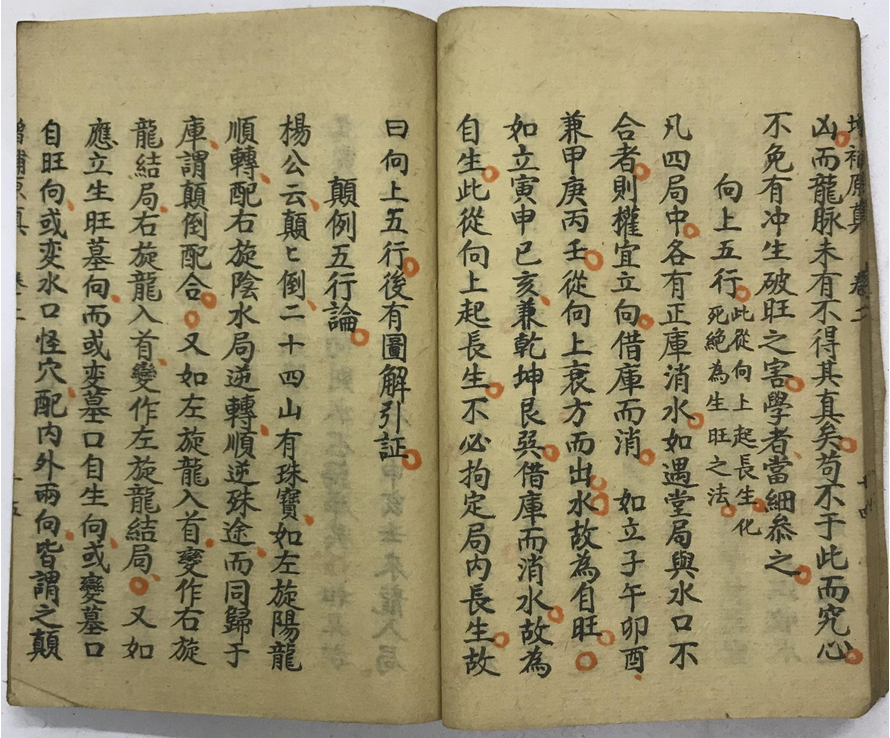 凶而龍脉未有不得其真矣苟不于此而究心
不免有冲生破旺之害學者當細叅之
向上五行
此從向上起長生化
死絶為生旺之法
凡四局中各有正庫消水如遇堂局與水口不
合者則權宜立向借庫而消 如立子午卯酉
兼甲庚丙壬從向上衰方而出水故為自旺
如立寅申巳亥兼乾坤艮巽借庫而消水故為
自生此從向上起長生不必拘定局内長生故
曰向上五行後有圖解引証
顛例五行論
楊公云顛〻倒二十四山有珠寶如左旋陽龍
順轉配右旋陰水局逆轉順逆殊途而同歸于
庫謂顛倒配合又如左旋龍入首變作右旋
龍結局右旋龍入首變作左旋龍結局 又如
應立生旺墓向而或变墓口自生向或變墓口
自旺向或变水口怪穴配内外兩向皆謂之顛